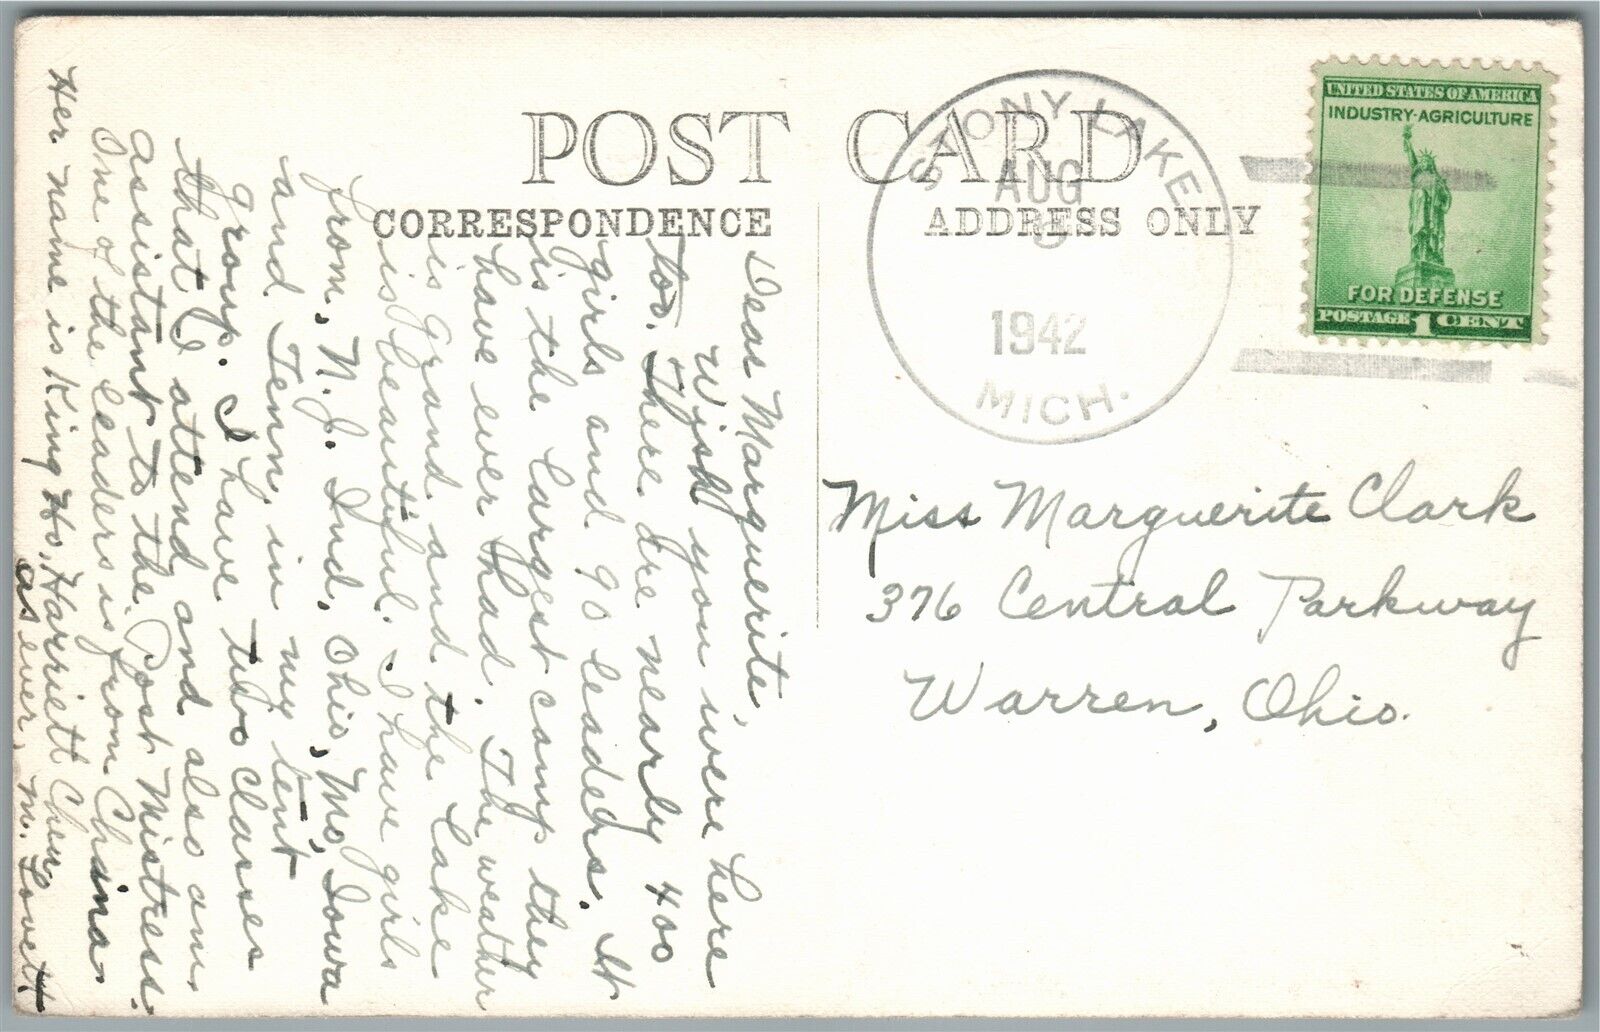 POST CARD
CORRESPONDENCE
ADDRESS ONLY
STONY LAKE
AUG
1942
MICH.
UNITED STATES OF AMERICA
INDUSTRY-AGRICULTURE
FOR DEFENSE
POSTAGE 1 CENT
Dear Marguerite,
Wish you were here
too. There are nearly 400
girls and 90 leaders. It
is the largest camp they
have ever had. The weather
is grand and the lake
is beautiful. I have girls
from, N.J. Ind, Ohio, Mo, Iowa
and Tenn, in my tent
group. I have two classes
that I attend and also am
assistant to the Post Mistress.
One of the leaders is from China.
Her name is King Ho, Harriett Chen
as ever, M. Lovett
Miss Marguerite Clark
376 Central Parkway
Warren, Ohio.